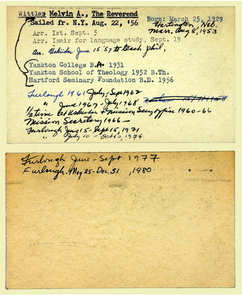 Wittler Melvin A., The Reverend
Born: March 25, 1929
Sailed fr. N.Y. Aug. 22, '56
Arr. Ist. Sept. 5
mar. Aug 8, 1953
Arr. Izmir for language study, Sept. 19
June 15 '57 to teach phil.
Yankton College B.A. 1951
Yankton School of Theology 1952 B.Th.
Hartford Seminary Foundation B.D. 1956
Furlough 1961 July - Sept 1962
June 1967 - July 1968
Mission Secy office 1960-66
Mission Secretary 1966 -
Furlough June 15 - Sept 15, 1971
" July 10 - 1974
Furlough June - Sept 1977
Furlough. May 25 - Dec. 31, 1980.